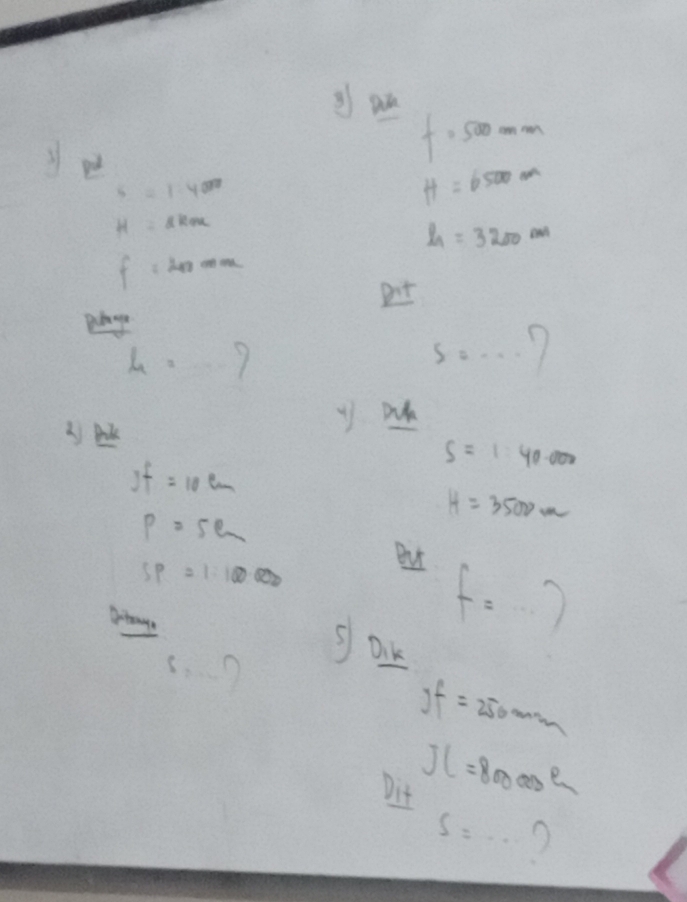 1) Dik
s = 1:4000
H = 8 km
f = 200 mm
Ditanya
h = ....?
2) Dik
Jf = 10 Cm
P = 5 Cm
SP = 1:100.000
Ditanya
s....?
3) Dik
f = 500 mm
H = 6500 m
h = 3200 m
Dit
s = ....?
4) Dik
S = 1:40.000
H = 3500 m
Dit
f = ...?
5) Dik
Jf = 250 mm
Jl = 800 000 Cm
Dit
S = ....?